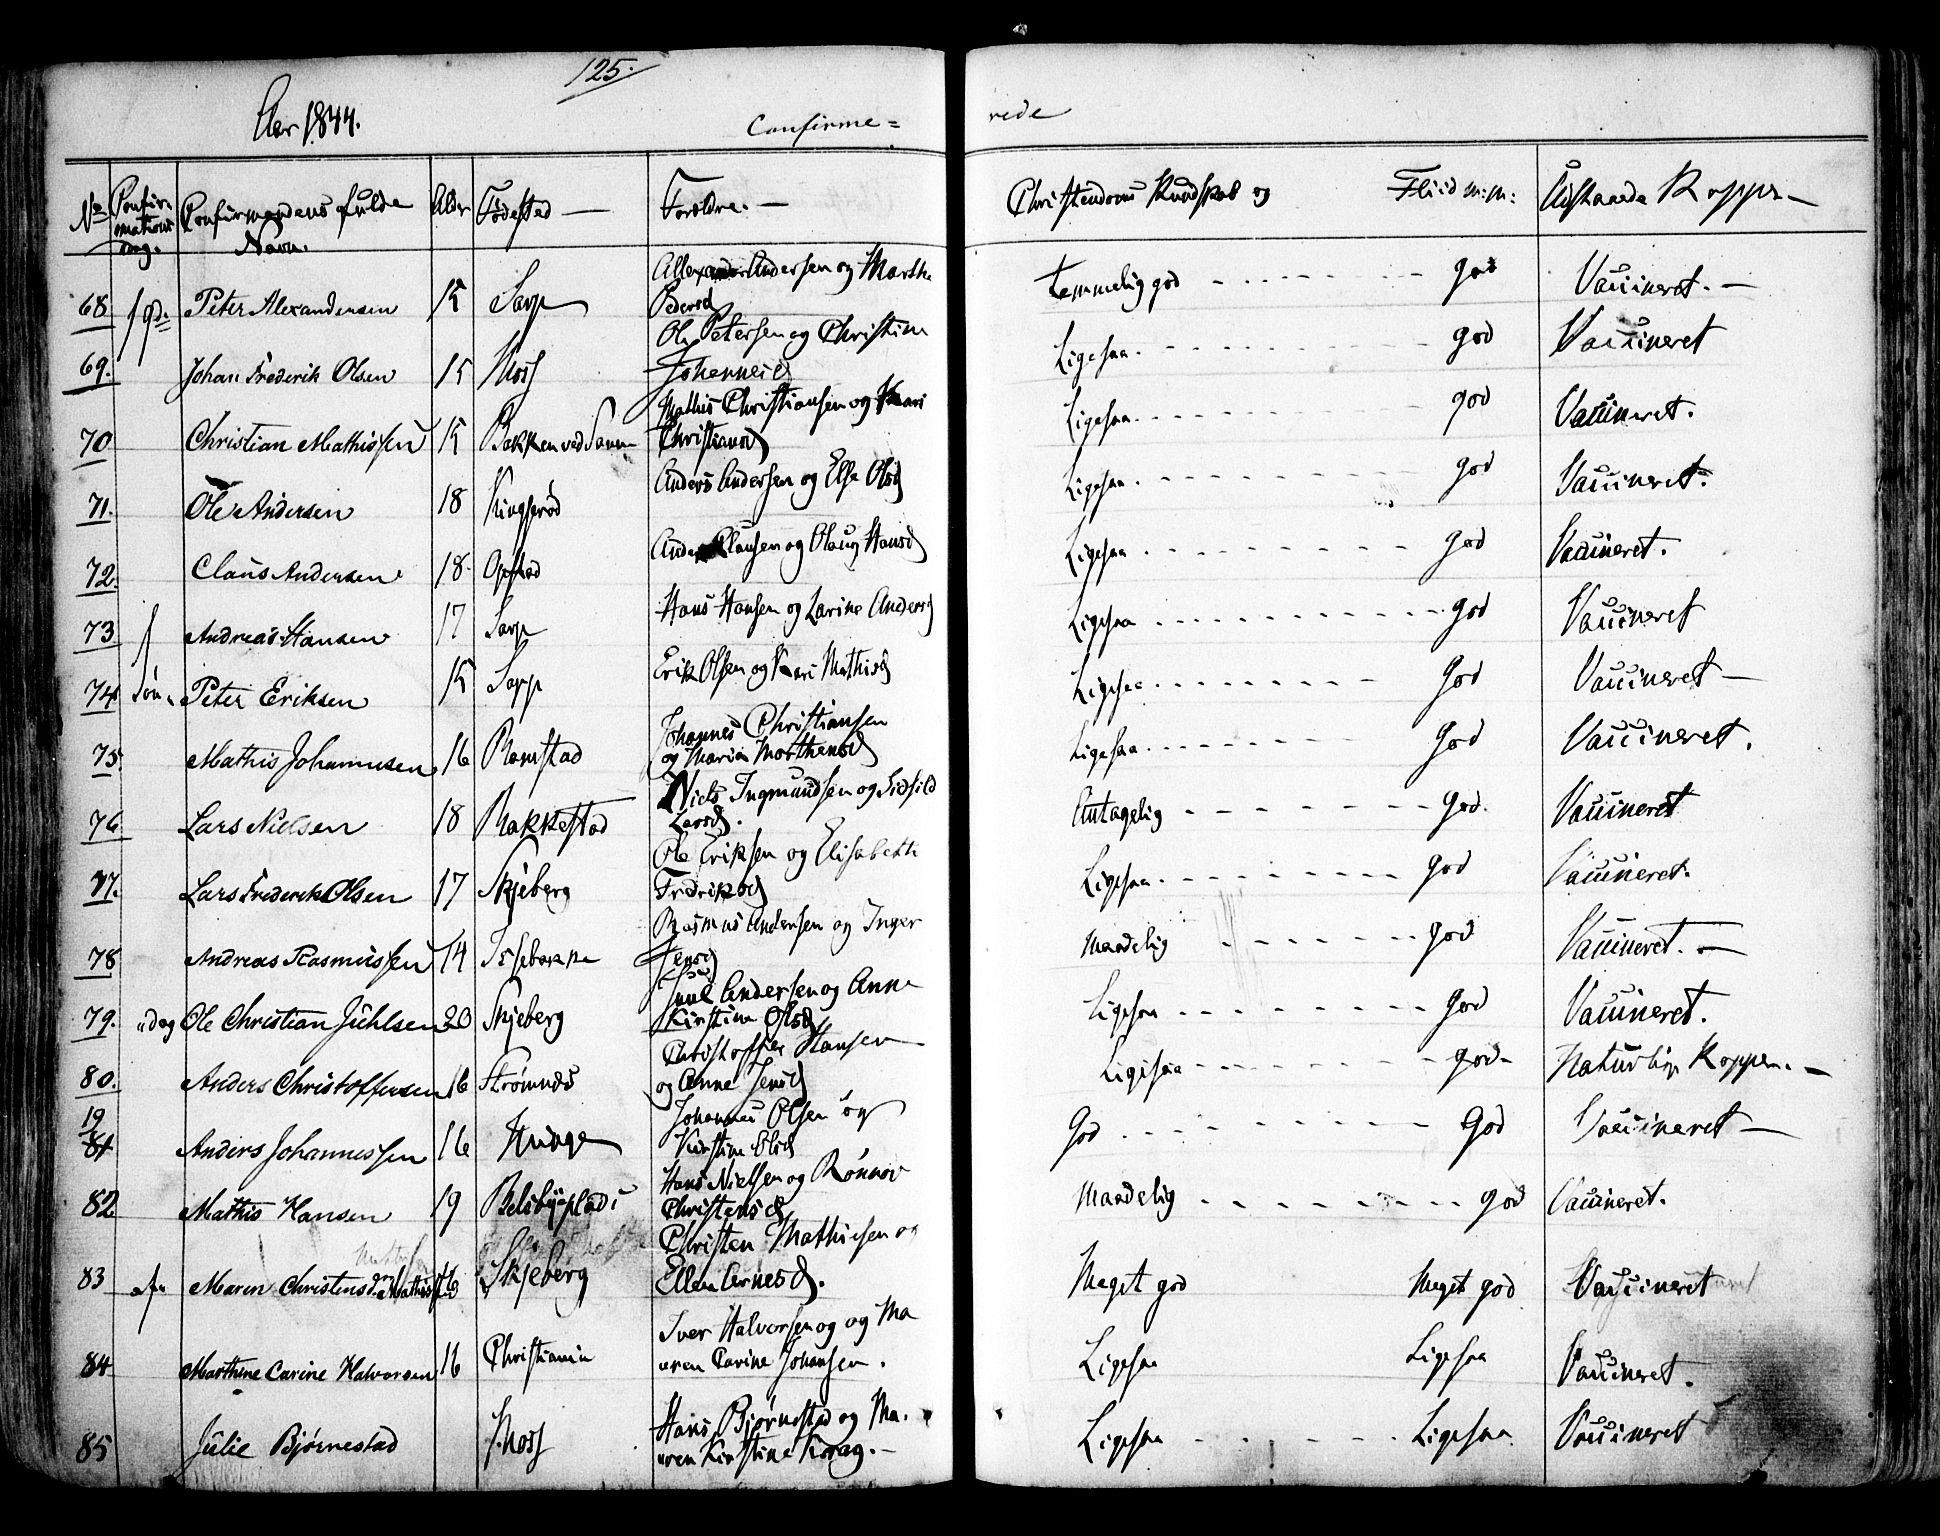 125.
Aar 1844.
Confirme= rede
No Confirmations dag. Confirmandens fulde Navn. Alder Fødested — Foreldre. — Christendoms Kundskab og Fliid m: m: Udstaaede Kopper —
Allexander Andersen og Marthe
68 Peter Alexandersen 15 Sarp Pedersd temmelig god god Vaccineret. —
Ole Petersen og Christine
69. Johan Frederik Olsen 15 Moss Johannesd Ligesaa. god Vaccineret
Mathis Christiansen og Kari
70 Christian Mathissen 15 Bakken ved Sannes Christiansd Ligesaa. god Vaccineret.
71. Ole Andersen 18 Kingsrød Anders Andersen og Else Olsd Ligesaa. god Vaccineret.
72. Claus Andersen 18 Opstad Anders Clausen og Olaug Hansd Ligesaa god Vaccineret.
73 Andreas Hansen 17 Sarp Hans Hansen og Larine Andersd Ligesaa god Vaccineret
74 Peter Eriksen 15 Sarp Erik Olsen og Kari Mathisd Ligesaa god Vaccineret —
Johannes Christiansen
75. Mathis Johannesen 16 Ramstad og Maria Morthensd Ligesaa god Vaccineret.
Niels Ingmundsen og Sidsild
76 Lars Nielsen 18 Rakkestad Larsd. Antagelig god. Vaccineret
Ole Eriksen og Elisabeth
77. Lars Frederik Olsen 17 Skjeberg Fredriksd Ligesaa. god Vaccineret.
Rasmus Andersen og Inger
78 Andreas Rasmussen 14 Isebakke Jensd Maadelig god Vaccineret. —
Juul Andersen og Anne
79. Ole Christian Jühlsen 20 Skjeberg Kirstine Olsd Ligesaa god Vaccineret.
Christoffer Hansen
80. Anders Christoffersen 16 Strømnes og Anne Jensd Ligesaa god — Naturlige Kopper. —
19 Johannes Olsen og
81 Anders Johannessen 16 Kirstine Olsd God God Vaccineret —
Hans Nielsen og Rønnov
82 Mathis Hansen 19 Belsbyeplads Christensd Maadelig god Vaccineret.
Christen Mathiesen og
83 Maren Christensd. Mathis 16 Skjeberg Ellen Arnesd. Meget god Meget god Vaccineret
Iver Halvorsen og og Ma
84 Marthine Carine Halvorsen 16 Christiania aren Carine Johansen. Ligesaa Ligesaa Vaccineret.
Hans Bjørnestad og Ma.
85 Julie Bjørnestad Moss aren Kirstine Krag. — Ligesaa Ligesaa Vaccineret